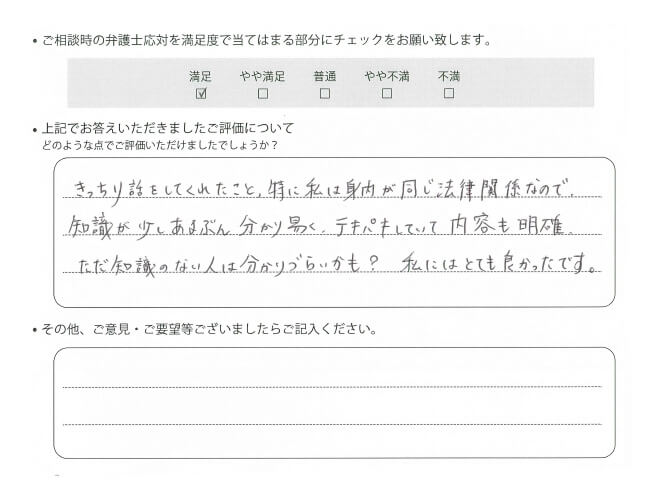 • ご相談時の弁護士応対を満足度で当てはまる部分にチェックをお願い致します。
満足 やや満足 普通 やや不満 不満
☑ ☐ ☐ ☐ ☐
• 上記でお答えいただきましたご評価について
どのような点でご評価いただけましたでしょうか？
きっちり話をしてくれたこと、特に私は身内が同じ法律関係なので、
知識が少しあるぶん分かり易く、テキパキしていて内容も明確。
ただ知識のない人は分かりづらいかも？ 私にはとても良かったです。
• その他、ご意見・ご要望等ございましたらご記入ください。